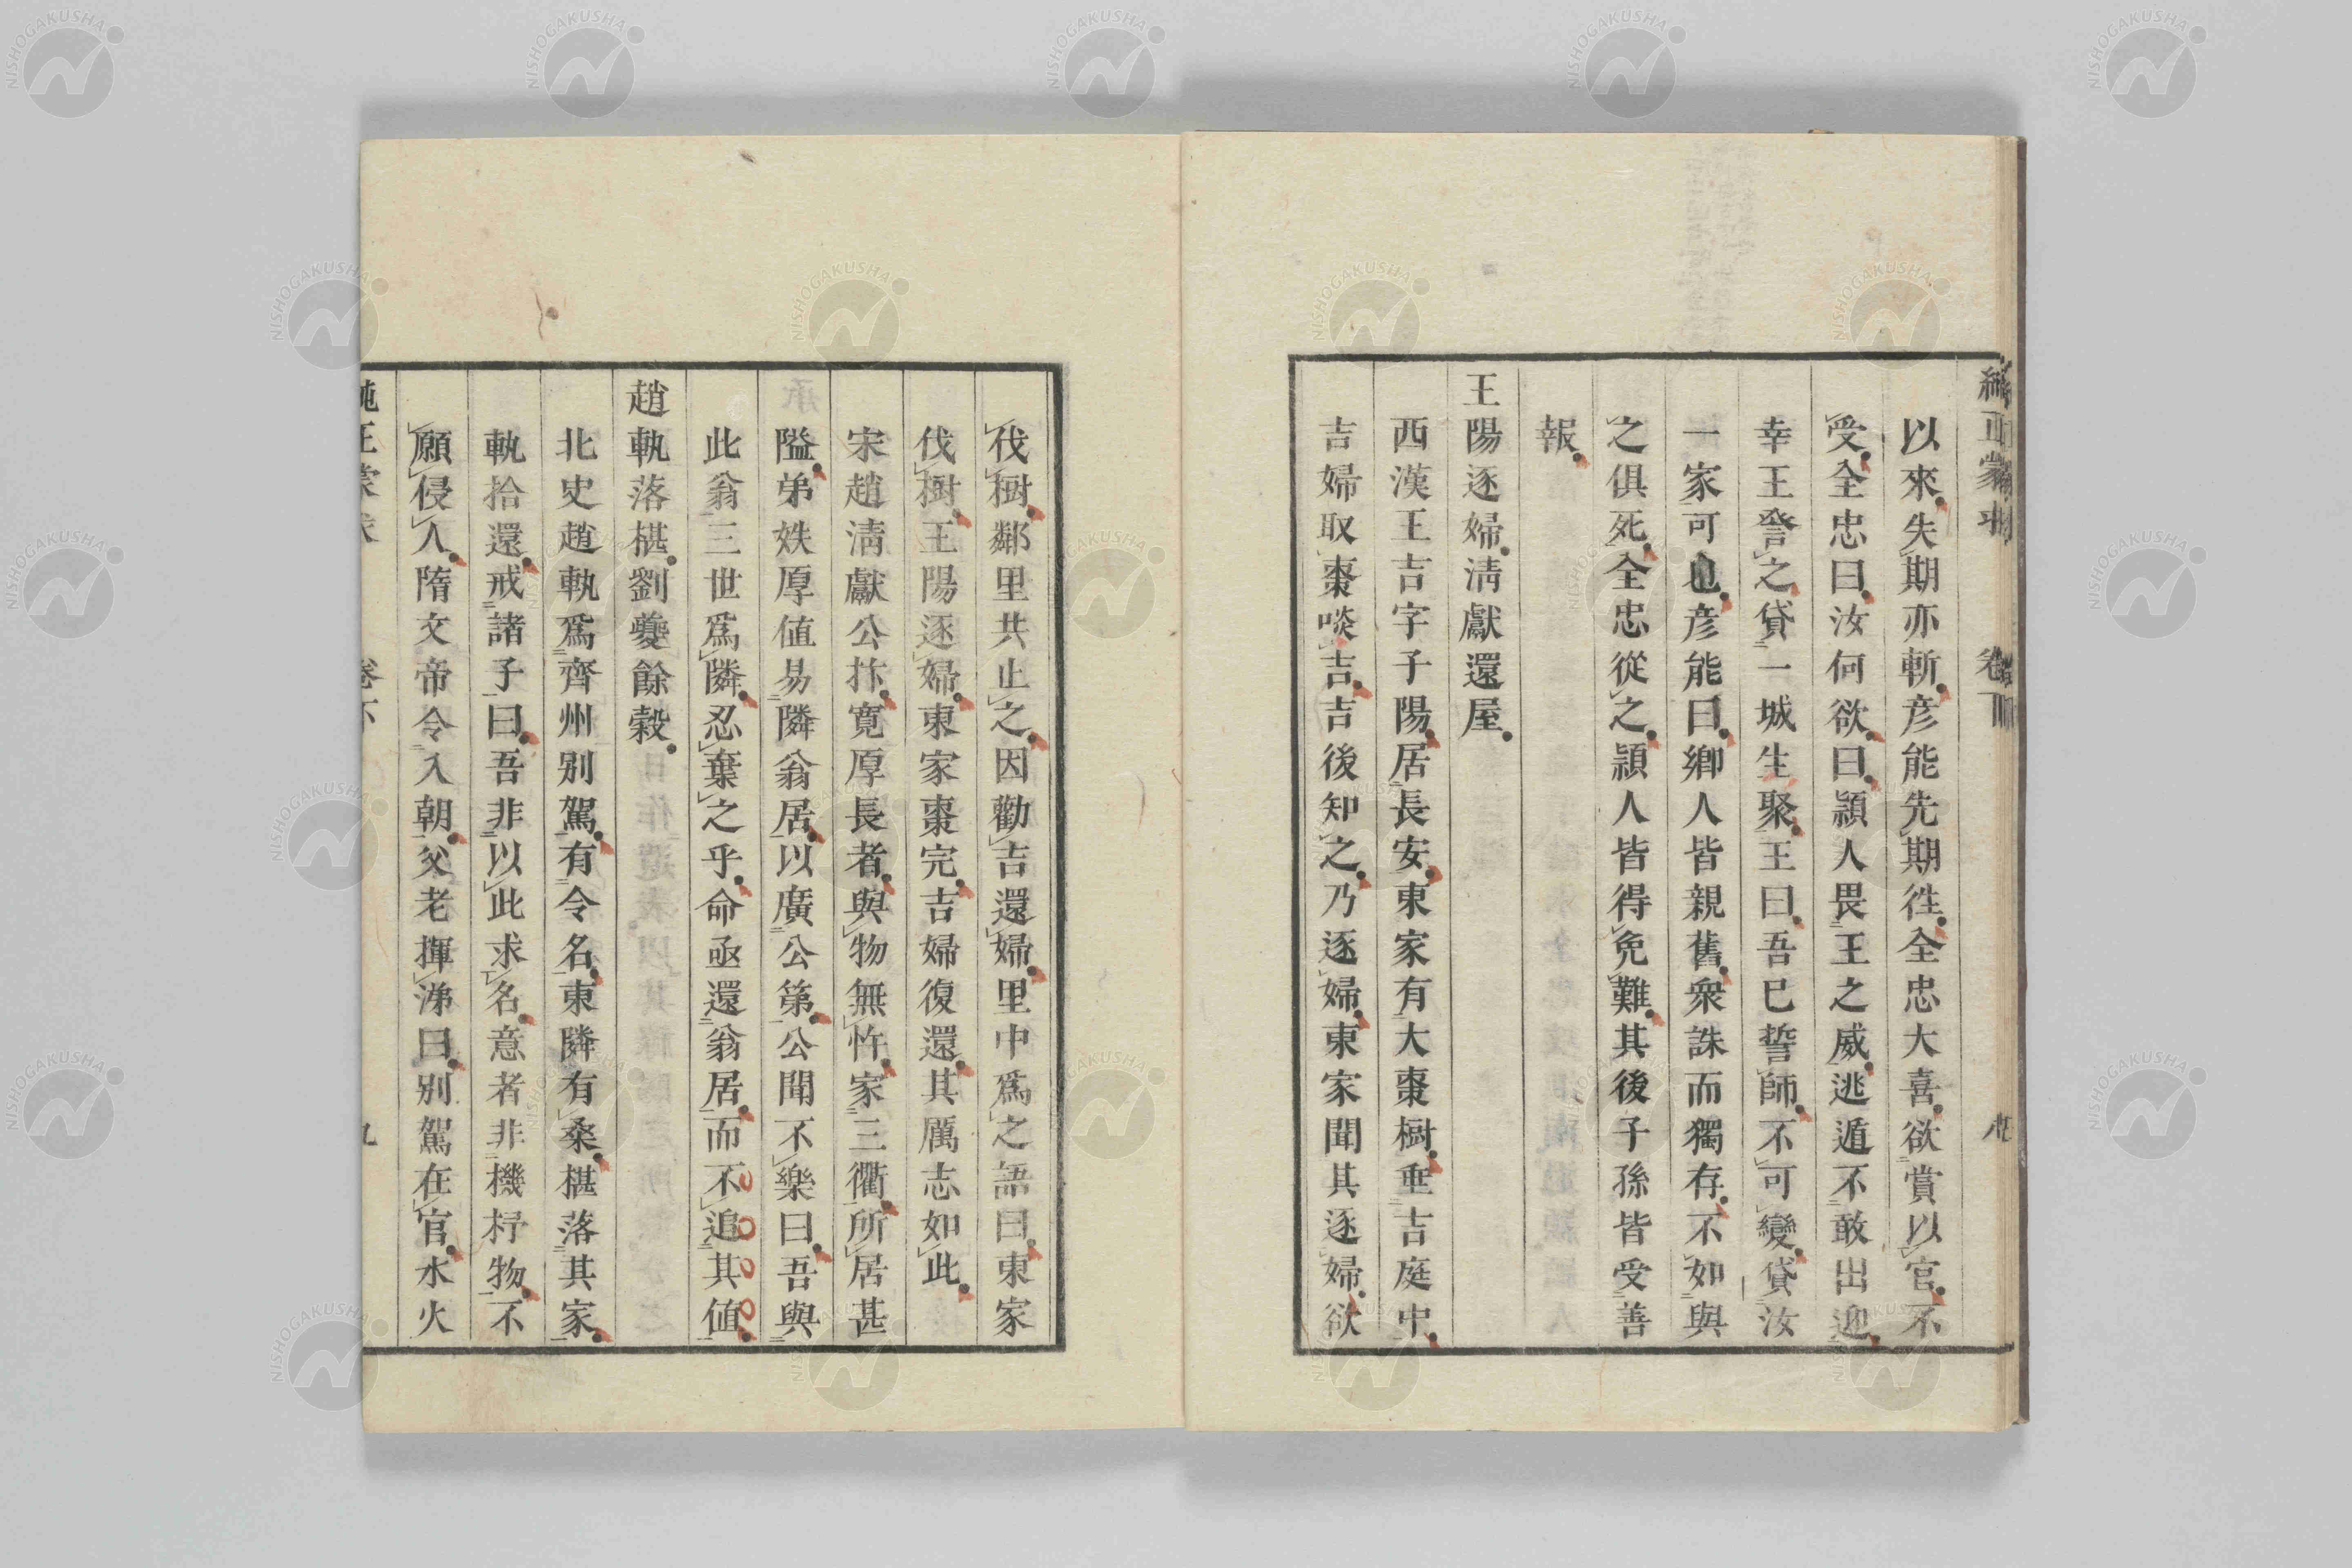 純正蒙求 卷下
以來失期亦斬彦能先期徃全忠大喜欲賞以官不
受全忠曰汝何欲曰潁人畏王之威逃遁不敢出迎
幸王誉之貸一城生聚王曰吾已誓師不可變貸汝
一家可也彦能曰鄉人皆親舊衆誅而獨存不如與
之俱死全忠從之潁人皆得免難其後子孫皆受善
報
王陽逐婦清獻還屋
西漢王吉字子陽居長安東家有大棗樹垂吉庭中
吉婦取棗啖吉吉後知之乃逐婦東家聞其逐婦欲
伐樹鄰里共止之因勸吉還婦里中爲之語曰東家
伐樹王陽逐婦東家棗完吉婦復還其厲志如此
宋趙清獻公抃寬厚長者與物無忤家三衢所居甚
隘弟姪厚値易隣翁居以廣公第公聞不樂曰吾與
此翁三世爲隣忍棄之乎命亟還翁居而不追其値
趙軌落椹劉夔餘穀
北史趙軌爲齊州别駕有令名東隣有桑椹落其家
軌拾還戒諸子曰吾非以此求名意者非機杼物不
願侵人隋文帝令入朝父老揮涕曰别駕在官水火
純正蒙求 卷下 九
NISHOGAKUSHA